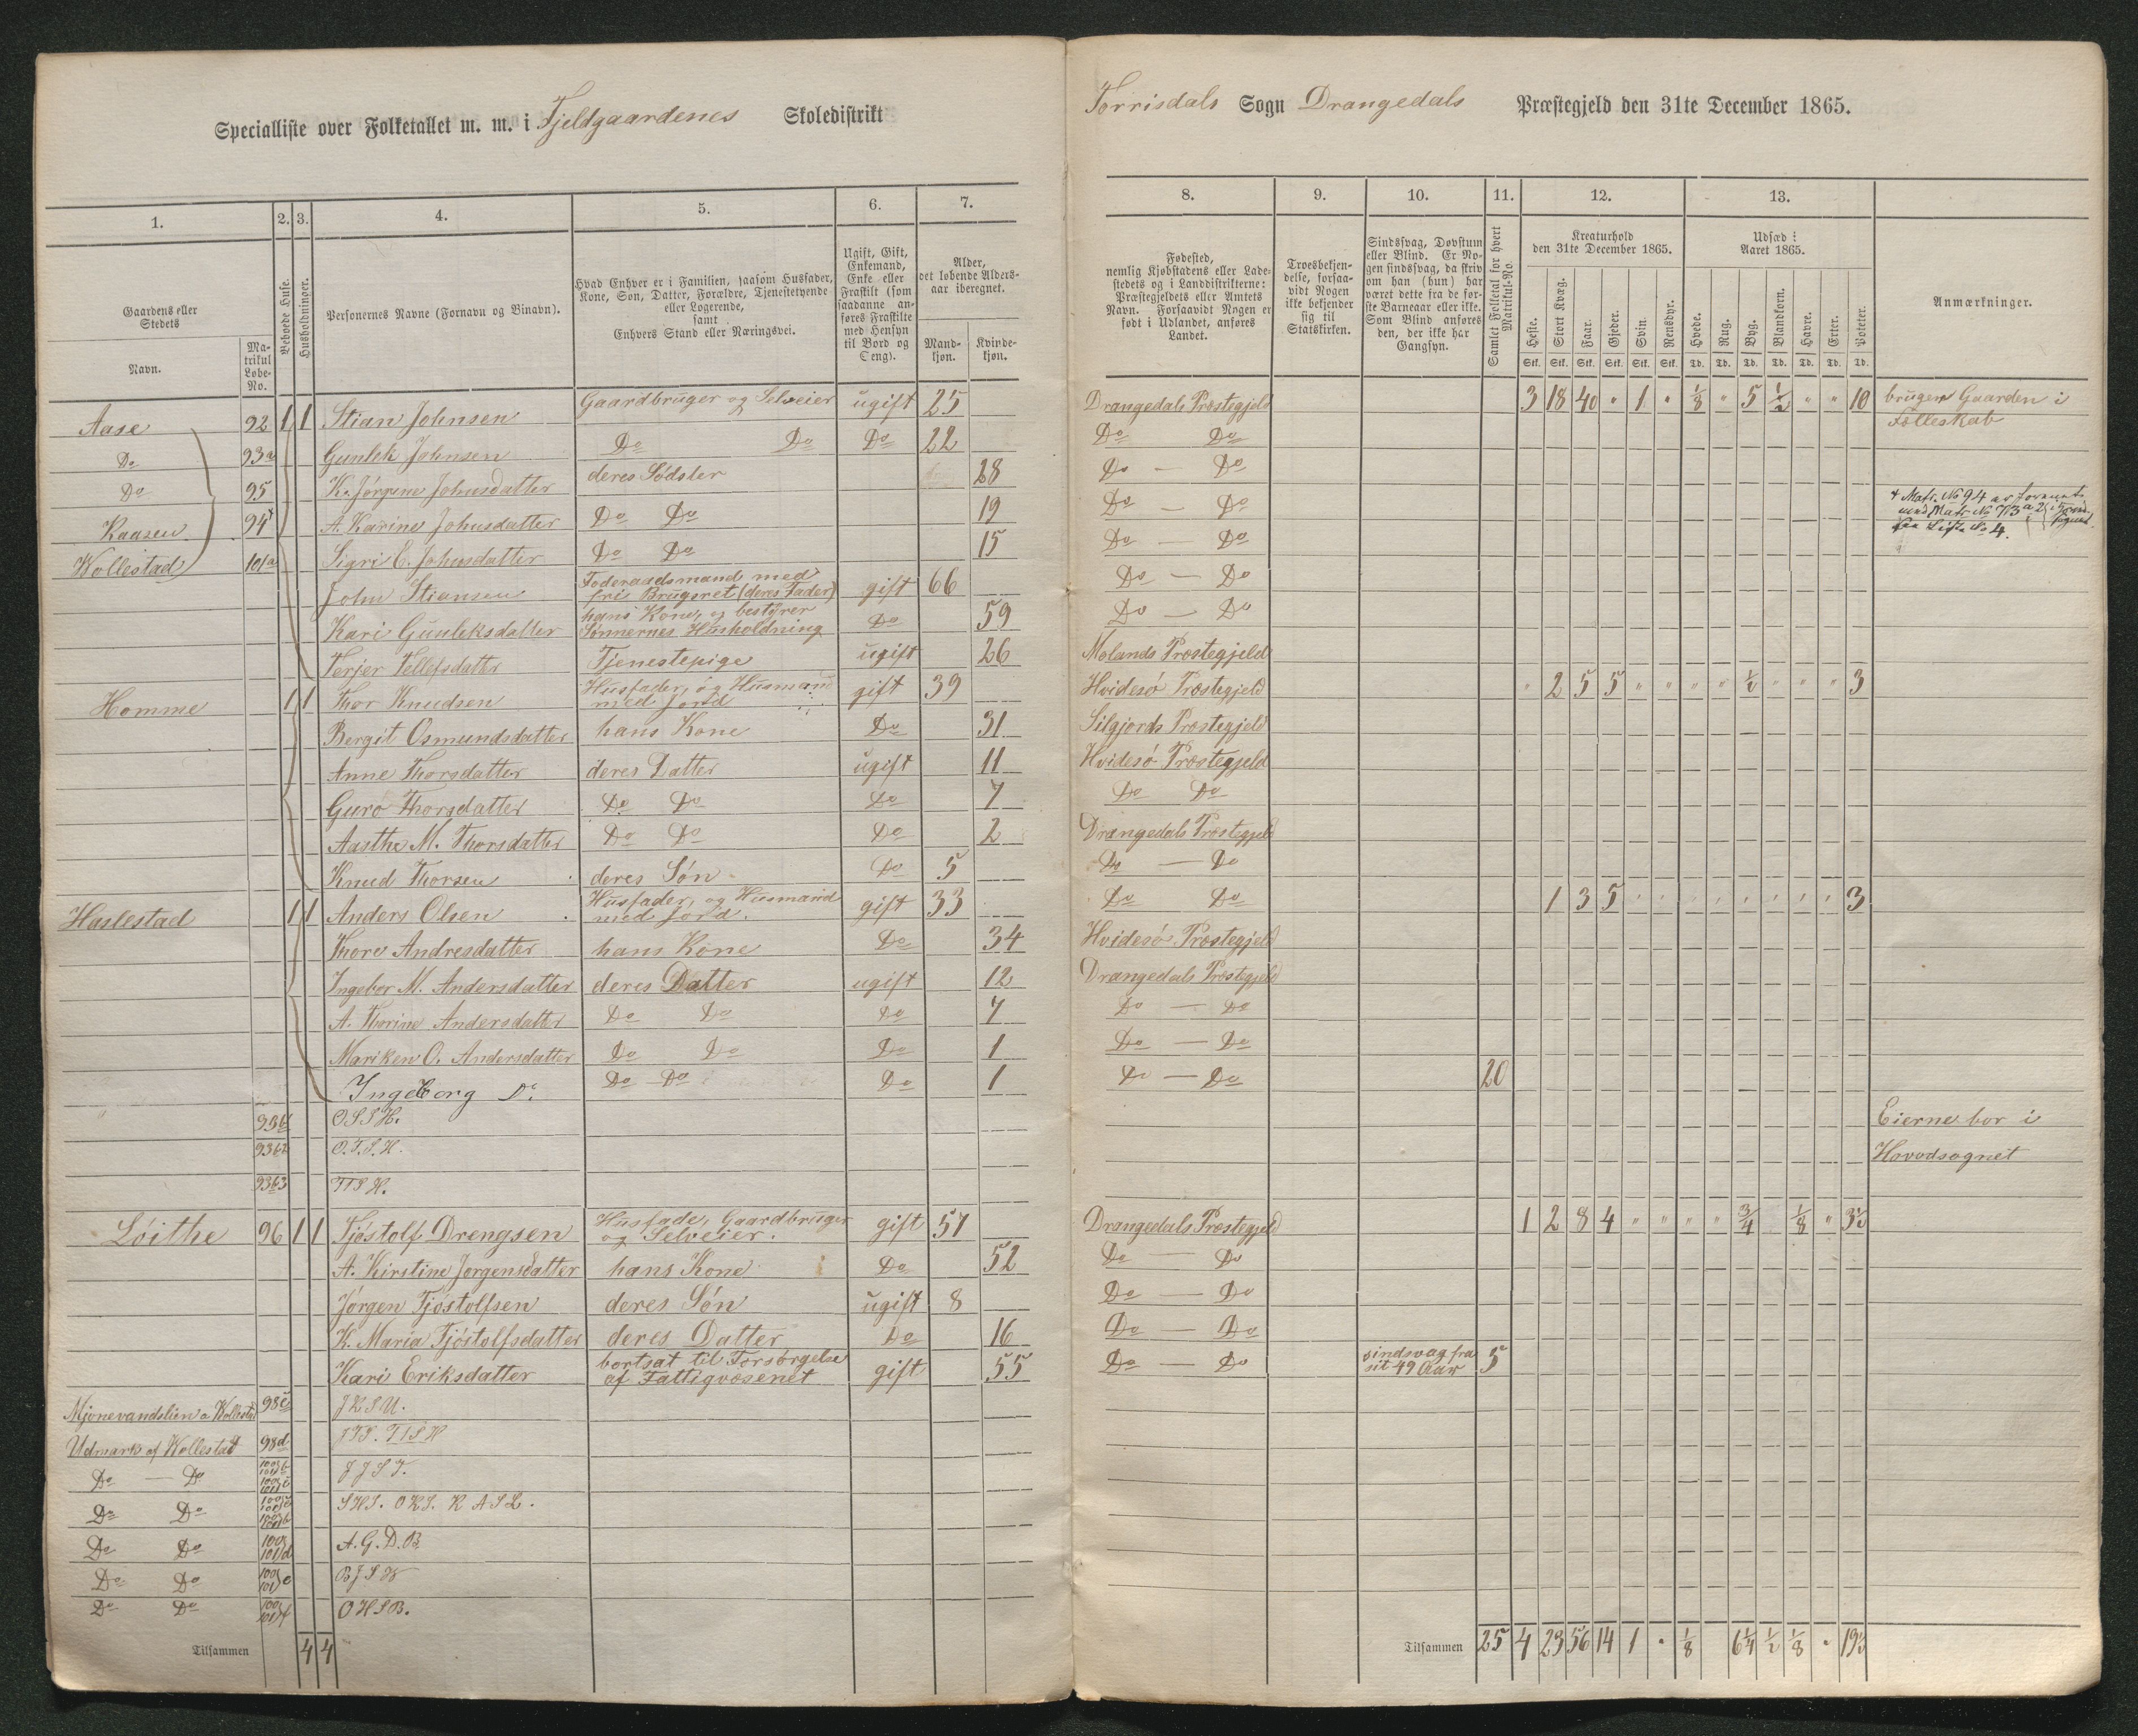 Specialliste over Folketallet m. m. i Fjeldgaardenes Skoledistrikt
Torrisdals Sogn Drangedals Præstegjeld den 31te December 1865.
1. 2. 3. 4. 5. 6. 7.
8. 9. 10. 11. 12. 13.
Gaardens eller Stedets
Navn.
Matrikul Løbe-No.
Beboede Huse.
Husholdninger.
Personernes Navne (Fornavn og Binavn).
Hvad Enhver er i Familien, saasom Husfader, Kone, Søn, Datter, Forældre, Tjenestetyende eller Logerende, samt Enhvers Stand eller Næringsvei.
Ugift, Gift, Enkemand, Enke eller Fraskilt (som saadanne anføres Fraskilte med Hensyn til Bord og Seng).
Alder, det løbende Alders-aar iberegnet.
Mand-kjøn.
Kvinde-kjøn.
Fødested, nemlig Kjøbstadens eller Ladestedets og i Landdistrikterne: Præstegjeldets eller Amtets Navn. Forsaavidt Nogen er født i Udlandet, anføres Landet.
Troesbekjendelse, forsaavidt Nogen ikke bekjender sig til Statskirken.
Sindssvag, Døvstum eller Blind. Er Nogen sindssvag, da skriv om han (hun) har været dette fra de første Barneaar eller ikke. Som Blind anføres den, der ikke har Gangsyn.
Samlet Folketal for hvert Matrikul-No.
Kreaturhold den 31te December 1865.
Heste. Stort Kvæg. Faar. Gjeder. Svin. Rensdyr.
Stk. Stk. Stk. Stk. Stk. Stk.
Udsæd i Aaret 1865.
Hvede. Rug. Byg. Blandkorn. Havre. Erter. Poteter.
Td. Td. Td. Td. Td. Td. Td.
Anmærkninger.
Aase 92 1 1 Stian Johnsen Gaardbruger og Selveier ugift 25 Drangedals Præstegjeld 3 18 40 " 1 " 1/8 " 5 1/2 " " 10 bruger Gaarden i
Do 93a Gunlek Johnsen Do Do Do 22 Do Do Fælleskab
Do 95 K. Jørgine Johnsdatter deres Södster 28 Do — Do
Kaasen 94+ A. Karine Johnsdatter Do Do 19 Do — Do + Matr. No 94 er
Wollestad 101a Sigri E. Johnsdatter Do Do 15 Do — Do paa Liste No 4.
John Stiansen Foderaadsmand med fri Brugsret (deres Fader) gift 66 Do — Do
Kari Gunleksdatter hans Kone, og bestyrer Sønnernes Husholdning Do 59 Do — Do
Terjer Tellefsdattr Tjenestepige ugift 26 Molands Præstegjeld
Homme 1 1 Thor Knudsen Husfader, og Husmand med Jord gift 39 Hvidesø Præstegjeld " 2 5 5 " " " " 1/2 " " " 3
Bergit Osmundsdatter hans Kone Do 31 Silgjords Præstegjeld
Anne Thorsdatter deres Datter ugift 11 Hvidesø Præstegjeld
Guro Thorsdatter Do Do Do 7 Do Do
Aasthe M. Thorsdatter Do Do Do 2 Drangedals Præstegjeld
Knud Thorsen deres Søn Do 5 Do — Do
Haslestad 1 1 Anders Olsen Husfader, og Husmand med Jord. gift 33 Do Do 1 3 5 " " " " " " " " 3
Thore Andresdatter hans Kone Do 34 Hvidesø Præstegjeld
Ingebor M. Andersdatter deres Datter ugift 12 Drangedals Præstegjeld
A. Thorine Andersdatter Do Do Do 7 Do — Do
Mariken O. Andersdatter Do Do Do 1 Do — Do
Ingeborg Do Do Do Do 1 Do — Do 20
" O S S H. Eierne bor i
O. T. S. H. Hovedsognet
93b3 T T S H.
Löithe 96 1 1 Tjöstolf Drengsen Husfade, Gaardbruger og Selveier. gift 57 Drangedals Præstegjeld 1 2 8 4 " " " " 3/4 1/8 " 3 1/2
A. Kirstine Jørgensdatter hans Kone Do 52 Do — Do
Jørgen Tjöstolfsen deres Søn ugift 8 Do — Do
K. Maria Tjöstolfsdatter deres Datter Do 16 Do — Do
Kari Eriksdatter bortsat til Forsörgelse af Fattigvæsenet gift 55 Do — Do sindsvag fra sit 49 Aar 5
Mjonevandslien a Wollestad 98c J K S U.
Udmark af Wollestad 98d T T S. T I S H
Do — Do J J S T.
Do Do S H S. O K S. K A S L.
Do Do 100 101 d A. G. D. B.
Do Do 100 101 e B J S W
Do Do 100 101 f O H S B.
Tilsammen 4 4
Tilsammen 25 4 23 56 14 1 " 1/8 6 1/4 1/2 1/8 " 19 1/2